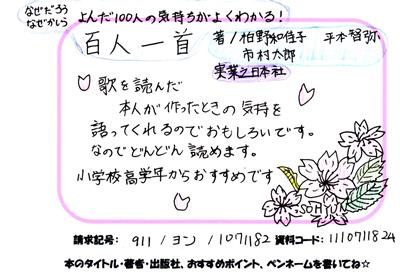 なぜだろう
なぜかしら
よんだ100人の気持ちがよくわかる！
百人一首
著/柏野和佳子 平本智弥
市村太郎
実業之日本社
歌を読んだ
本人が作ったときの気持を
語ってくれるのでおもしろいです。
なのでどんどん読めます。
小学校高学年からおすすめです
SOHJ
請求記号: 911/ヨン/1071182 資料コード: 111071824
本のタイトル・著者・出版社、おすすめポイント、ペンネームを書いてね☆